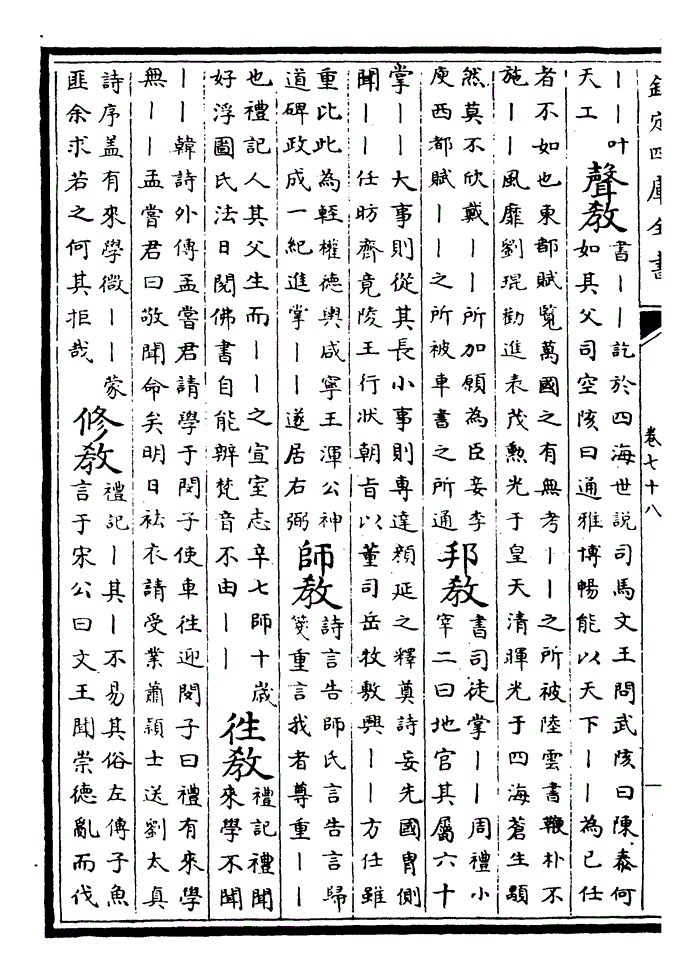 欽定四庫全書
卷七十八
｜｜叶
天工
聲教
書｜｜訖於四海世説司馬文王問武陔曰陳泰何
如其父司空陔曰通雅博暢能以天下｜｜為已任
者不如也東都賦覧萬國之有無考｜｜之所被陸雲書鞭朴不
施｜｜風靡劉琨勸進表茂勲光于皇天清暉光于四海蒼生顒
然莫不欣戴｜｜所加願為臣妾李
庾西都賦｜｜之所被車書之所通
邦教
書司徒掌｜｜周禮小
宰二曰地官其屬六十
掌｜｜大事則從其長小事則專達顔延之釋奠詩妄先國胄側
聞｜｜任昉齊竟陵王行狀朝旨以董司岳牧敷興｜｜方任雖
重比此為輕權德輿咸寧王渾公神
道碑政成一紀進掌｜｜遂居右弼
師教
詩言告師氏言告言歸
箋重言我者尊重｜｜
也禮記人其父生而｜｜之宣室志辛七師十歲
好浮圖氏法日閲佛書自能辨梵音不由｜｜
往教
禮記禮聞
來學不聞
｜｜韓詩外傳孟嘗君請學于閔子使車往迎閔子曰禮有來學
無｜｜孟嘗君曰敬聞命矣明日袪衣請受業蕭穎士送劉太真
詩序盖有來學微｜｜蒙
匪余求若之何其拒哉
修教
禮記｜其｜不易其俗左傳子魚
言于宋公曰文王聞崇德亂而伐